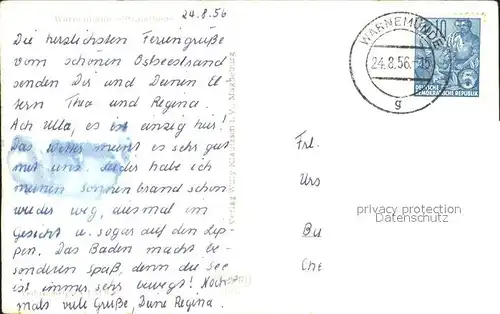 24.8.56
Die herzlichsten Feriengrüße
vom schönen Ostseestrand
senden Dir und Deinen El
tern Thea und Regina.
Ach Ulla, es ist einzig hier!
Das Wetter meint es sehr gut
mit uns. Leider habe ich
meinen Sonnenbrand schon
wieder weg, diesmal im
Gesicht u. sogar auf den Lip-
pen. Das Baden macht be-
sonderen Spaß, denn die See
ist immer sehr bewegt! Noch-
mals viele Grüße, Deine Regina.
Verlag Willy Klautzsch I. V. Magdeburg
WARNEMÜNDE
24.8.56.-15
g
10
5
DEUTSCHE
DEMOKRATISCHE REPUBLIK
Frl.
Urs
Bu
Che
privacy protection
Datenschutz